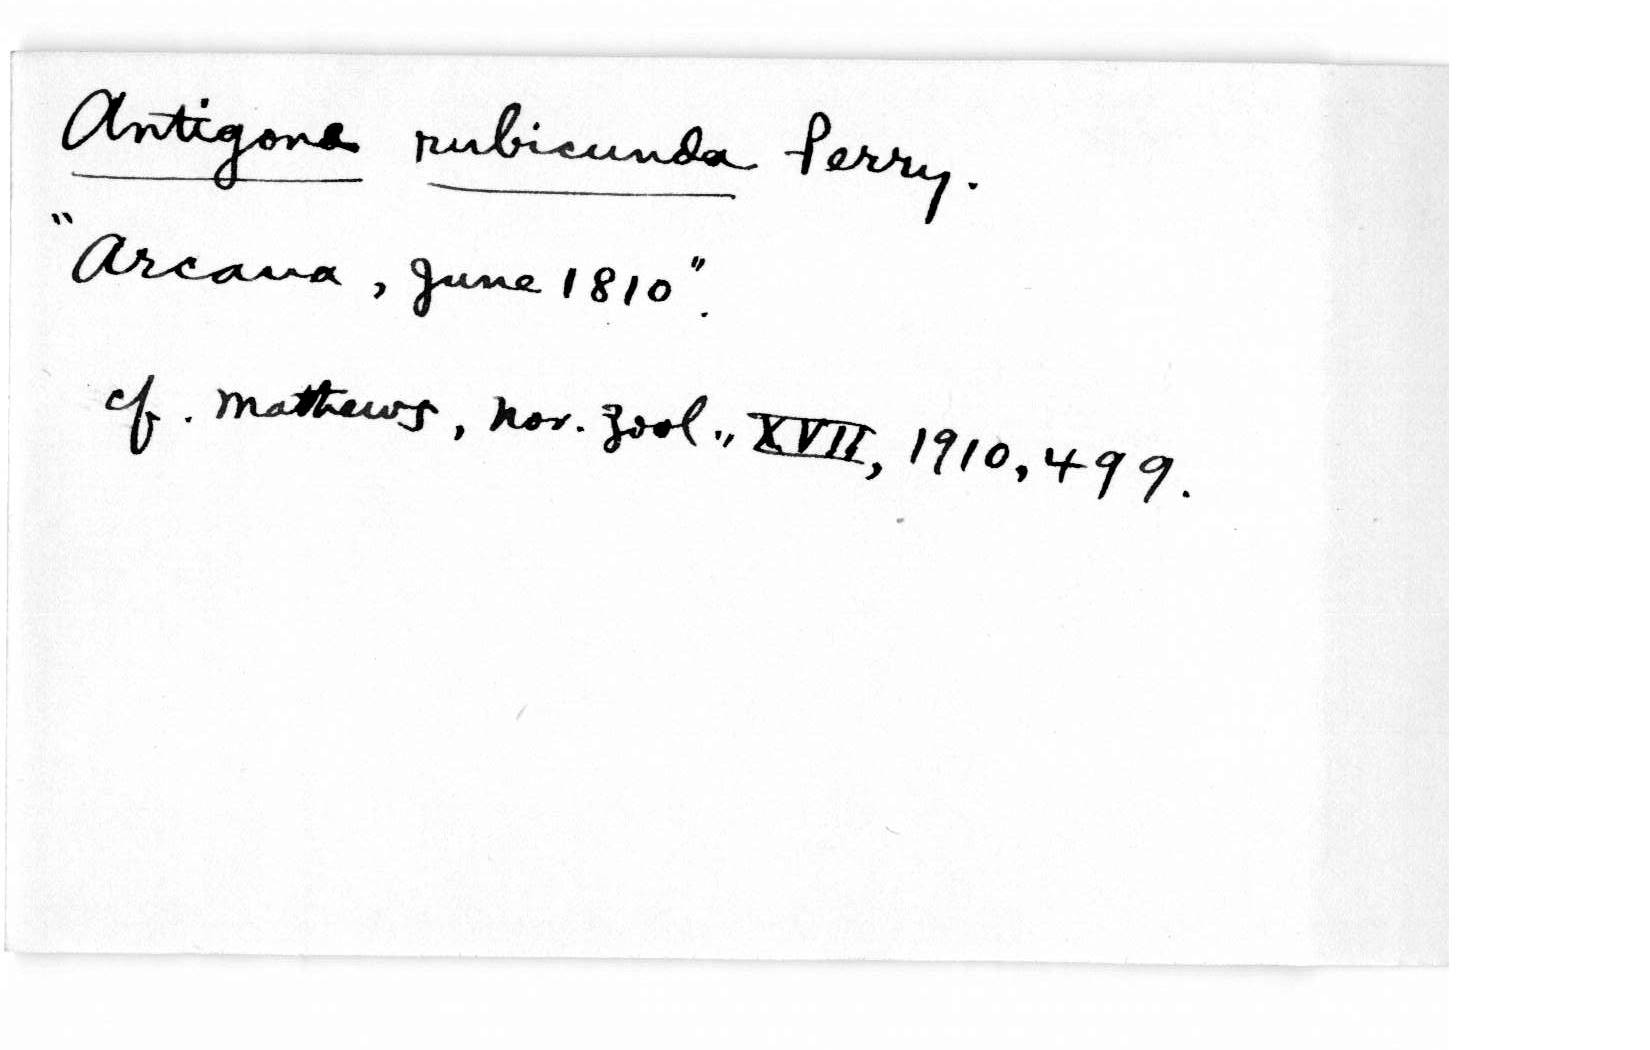 Antigone rubicunda Perry.
"Arcana, June 1810".
cf. Mathews, Nov. Zool., XVII, 1910, 499.